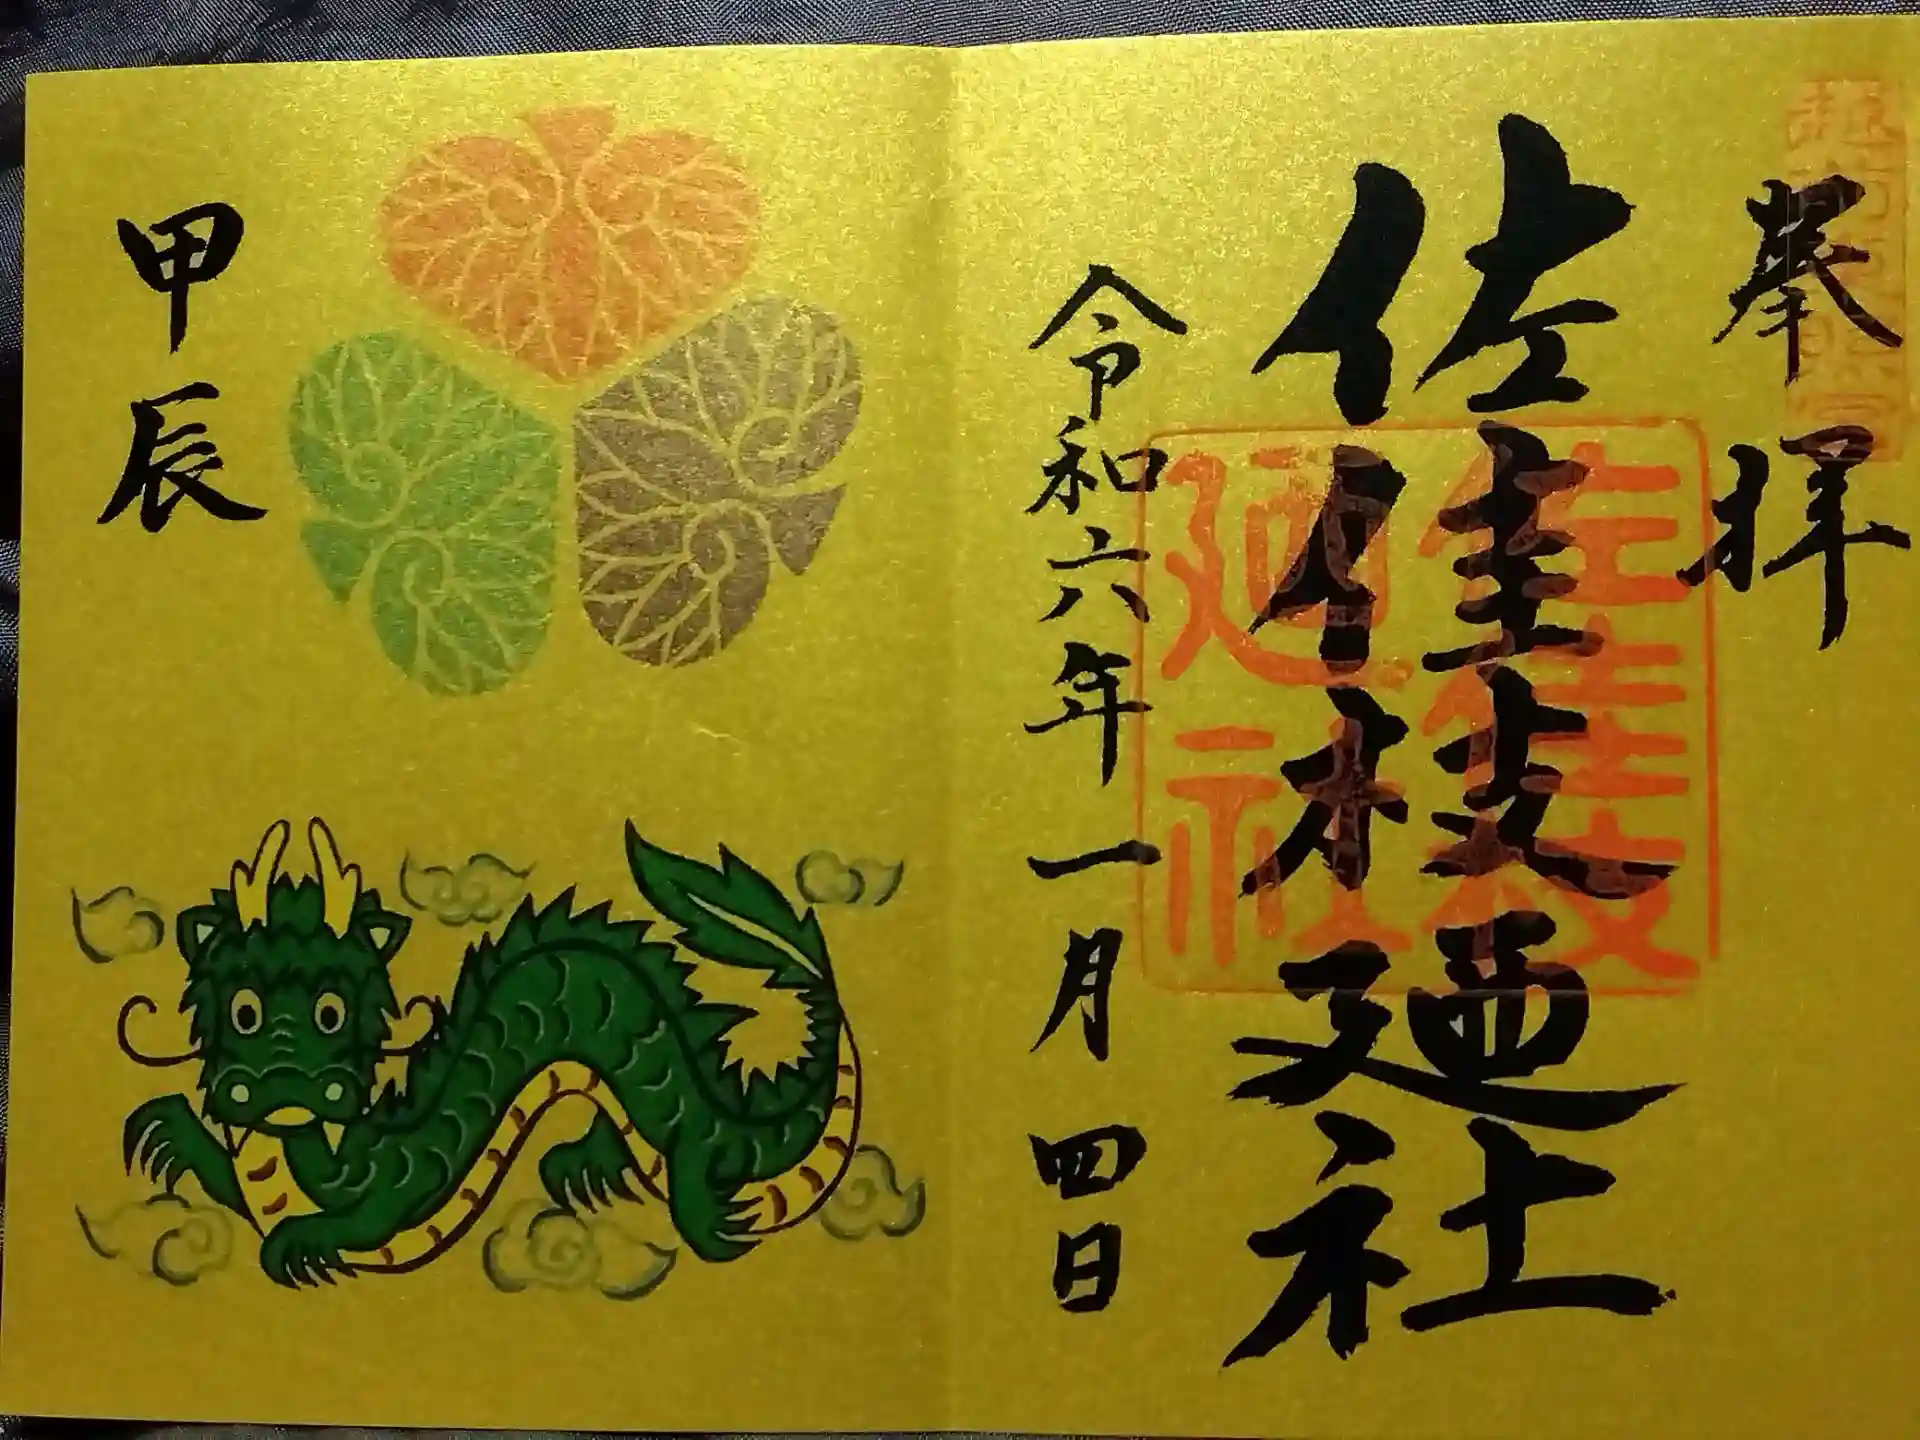 奉拝
越前東照宮
佐佳枝廼社
佐佳枝
廼社
令和六年一月四日
甲辰